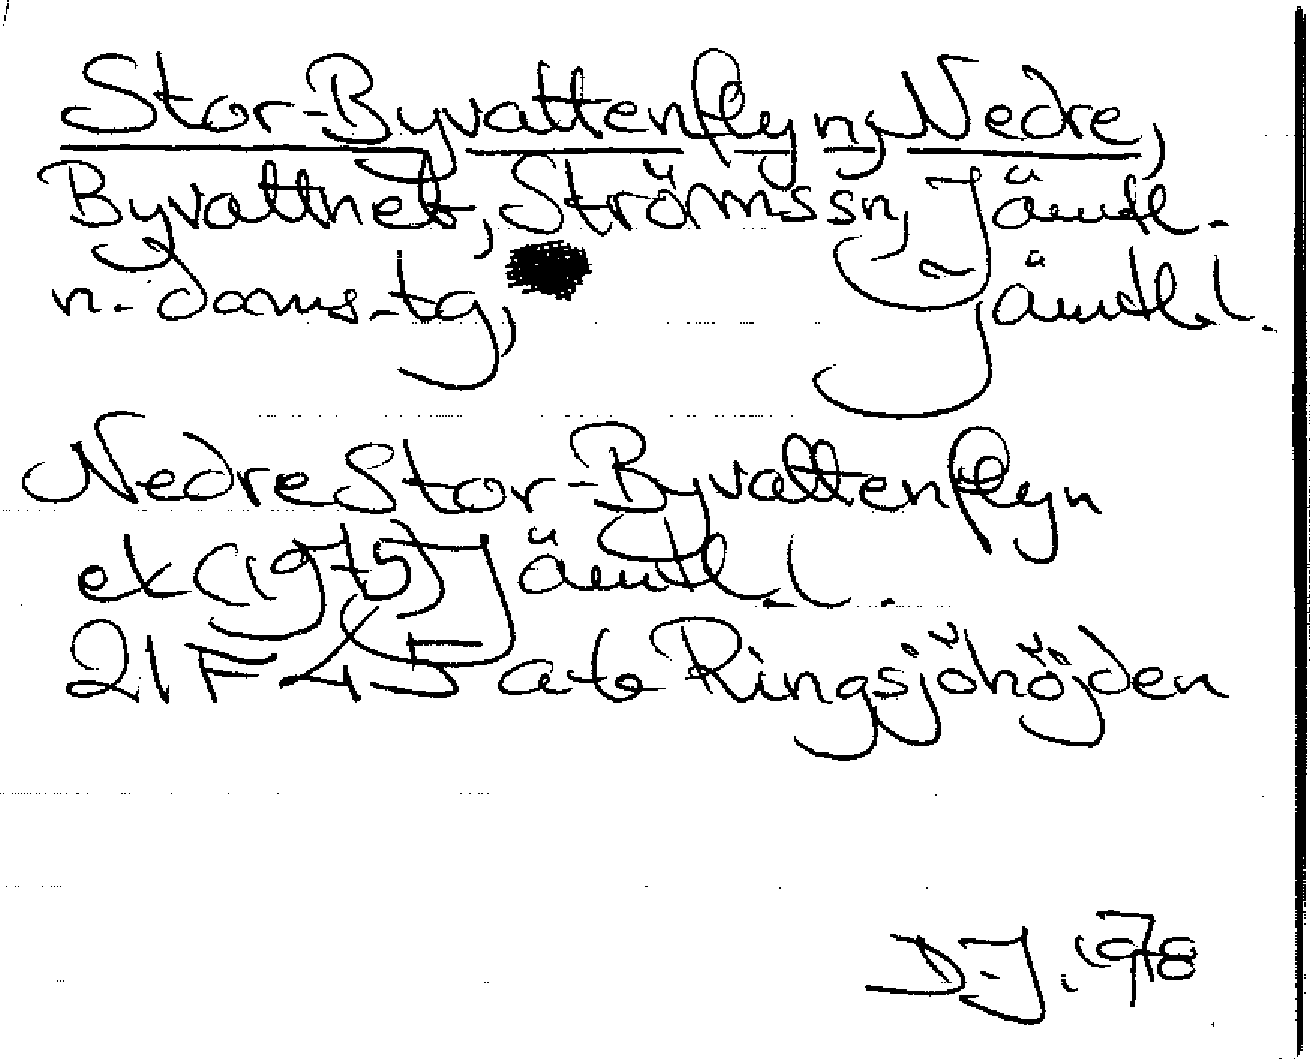 Stor-Byvattenflyn, Nedre,
Byvattnet, Strömssn, Jämtl.
n. doms.tg, Jämtl.l.
Nedre Stor-Byvattenflyn
ek (1975) Jämtl.l.
21 F 45 a+b Ringsjöhöjden
D.J. 1978